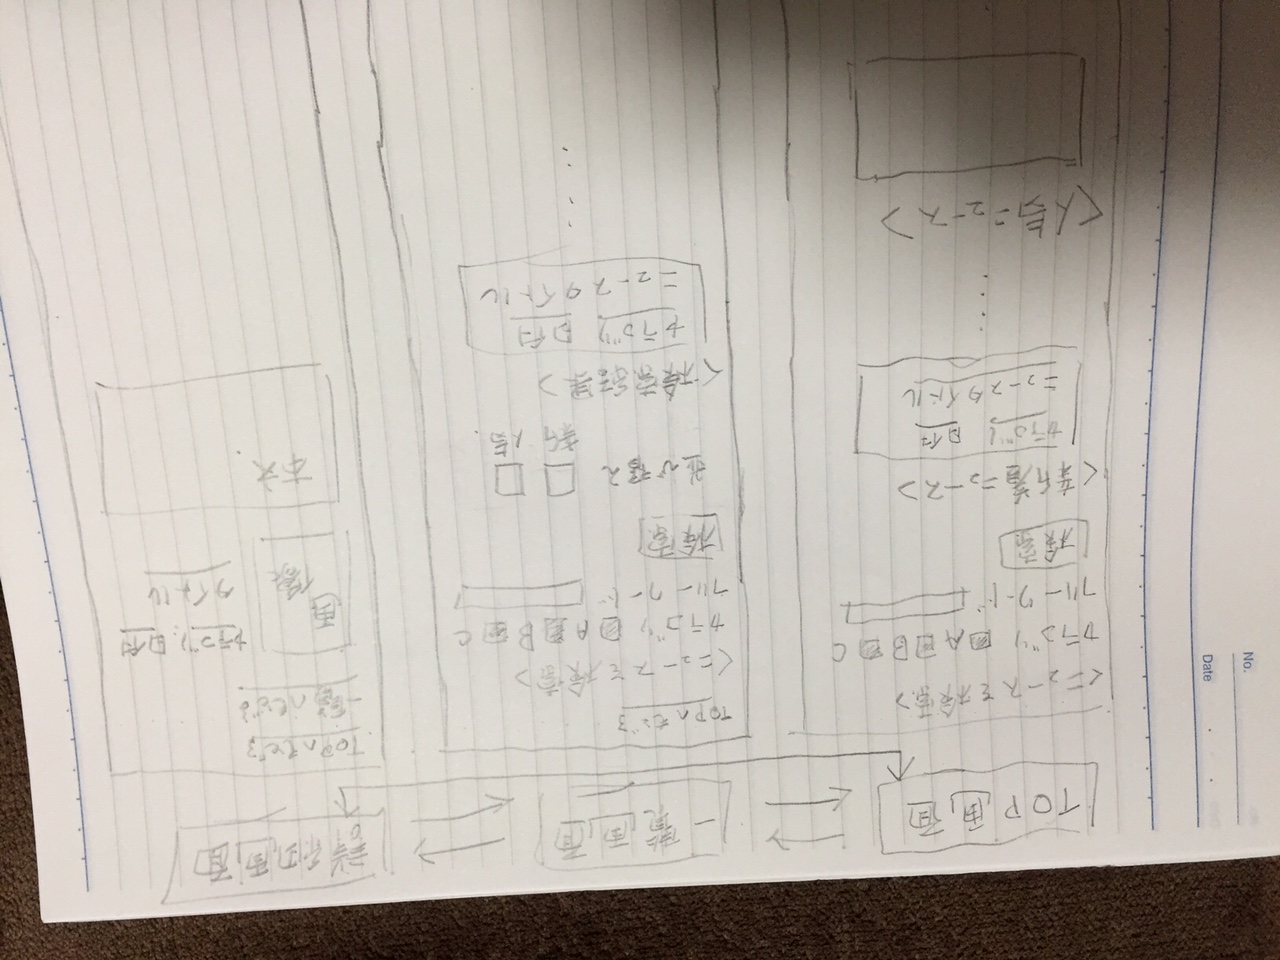 No.
Date
TOP画面
一覧画面
詳細画面
<ニュースを検索>
カテゴリ A B C
フリーワード
検索
<新着ニュース>
カテゴリ 日付
ニュースタイトル
<人気ニュース>
TOPへもどる
<ニュースを検索>
カテゴリ A B C
フリーワード
検索
並び替え
新 人気
<検索結果>
カテゴリ 日付
ニュースタイトル
TOPへもどる
一覧へもどる
画像
カテゴリ 日付
タイトル
本文